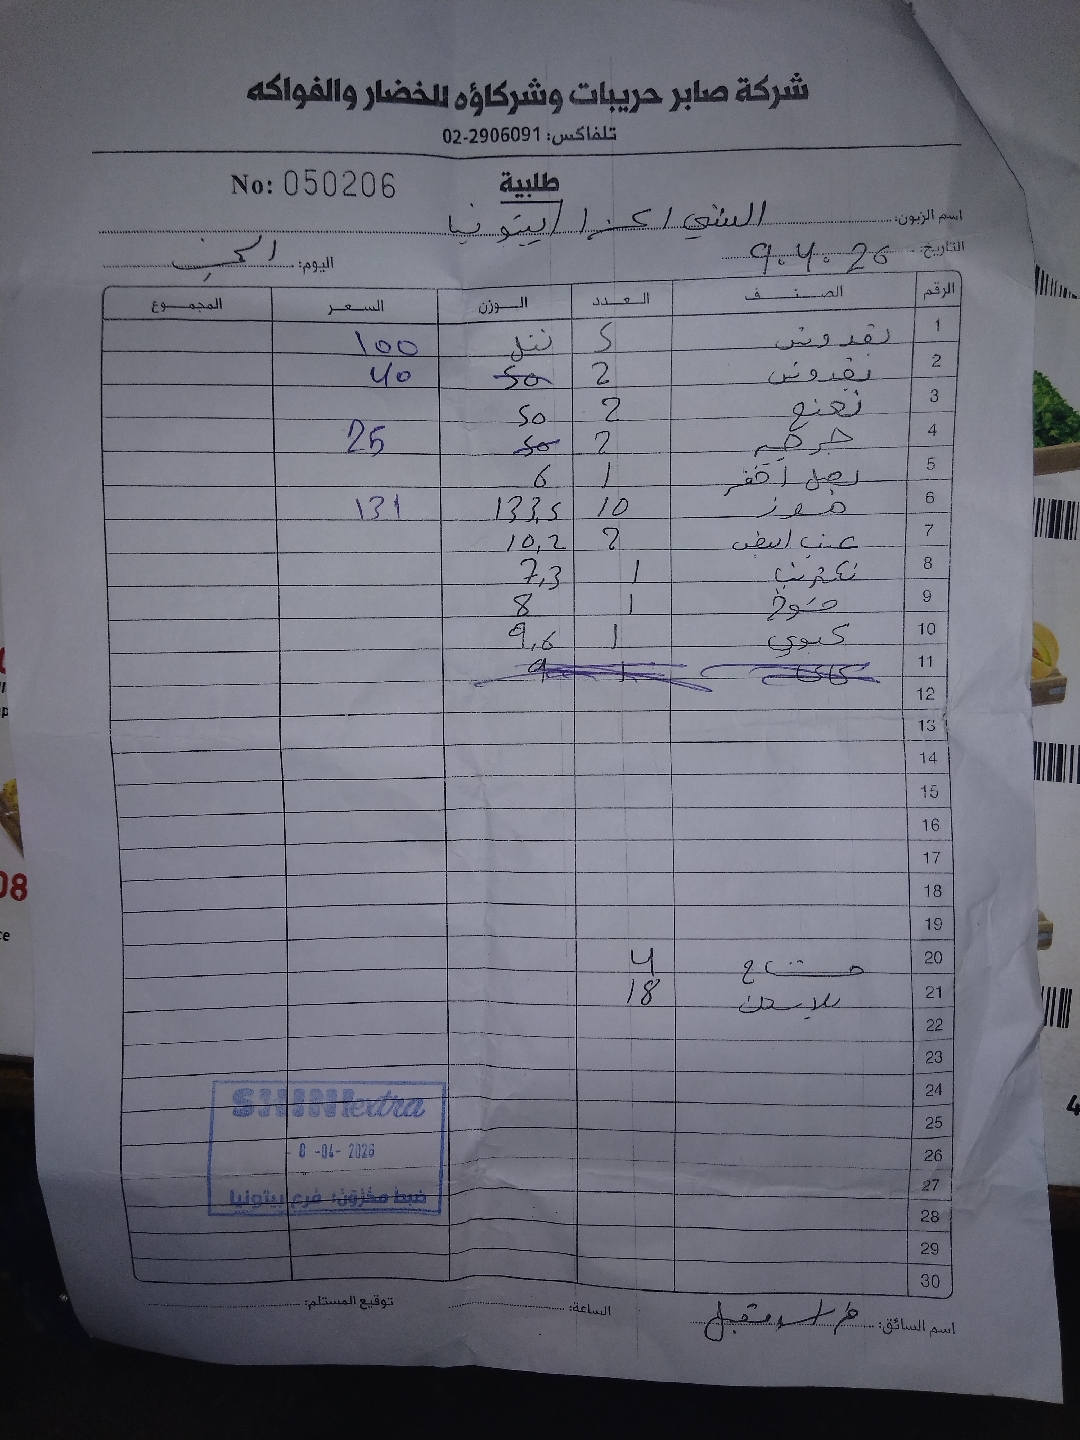 شركة صابر حريبات وشركاؤه للخضار والفواكه
تلفاكس: 02-2906091
طلبية
No: 050206
اسم الزبون: الشني اكسترا بيتونيا
التاريخ: 9.4.26
اليوم: الخميس
الرقم الصنف العدد الوزن السعر المجموع
1 بقدونس 5 100
2 بقدونس 2 50 40
3 نعنع 2 50
4 جرجير 2 50 25
5 بصل اخضر 1 6
6 موز 10 133,5 131
7 عنب ابيض 2 10,2
8 نكترينا 1 7,3
9 خوخ 1 8
10 كيوي 1 9,6
11 1 9
12
13
14
15
16
17
18
19
20 4
21 بلاستك 18
22
23
24
25
26
27
28
29
30
SHINI extra
8 -04- 2026
ضبط مخزون: فرع بيتونيا
اسم السائق:
الساعة:
توقيع المستلم:
08